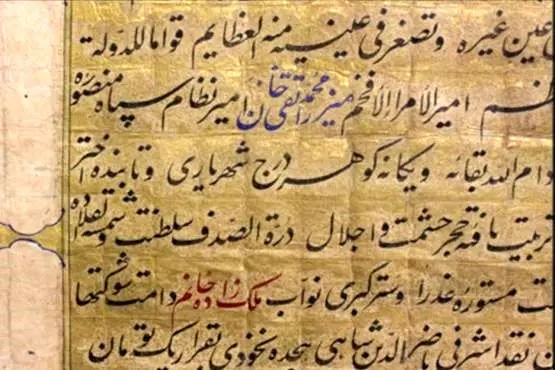 عین غیره و تصغر فی عینیه منه العظایم قواماً للدولة
امیر الامراء الافخم میرزا محمد تقی خان امیر نظام سپاه منصوره
دام الله بقائه و یگانه گوهر درج شهریاری و تابنده اختر
تربیت یافته حجر حشمت و اجلال درة الصدف سلطنت و شمسه
مستوره عذرا و ستر کبری نواب ملک زاده خانم دامت شوکتها
نقد اشرفی ناصرالدین شاهی هجده نخودی بقرار یک تومان